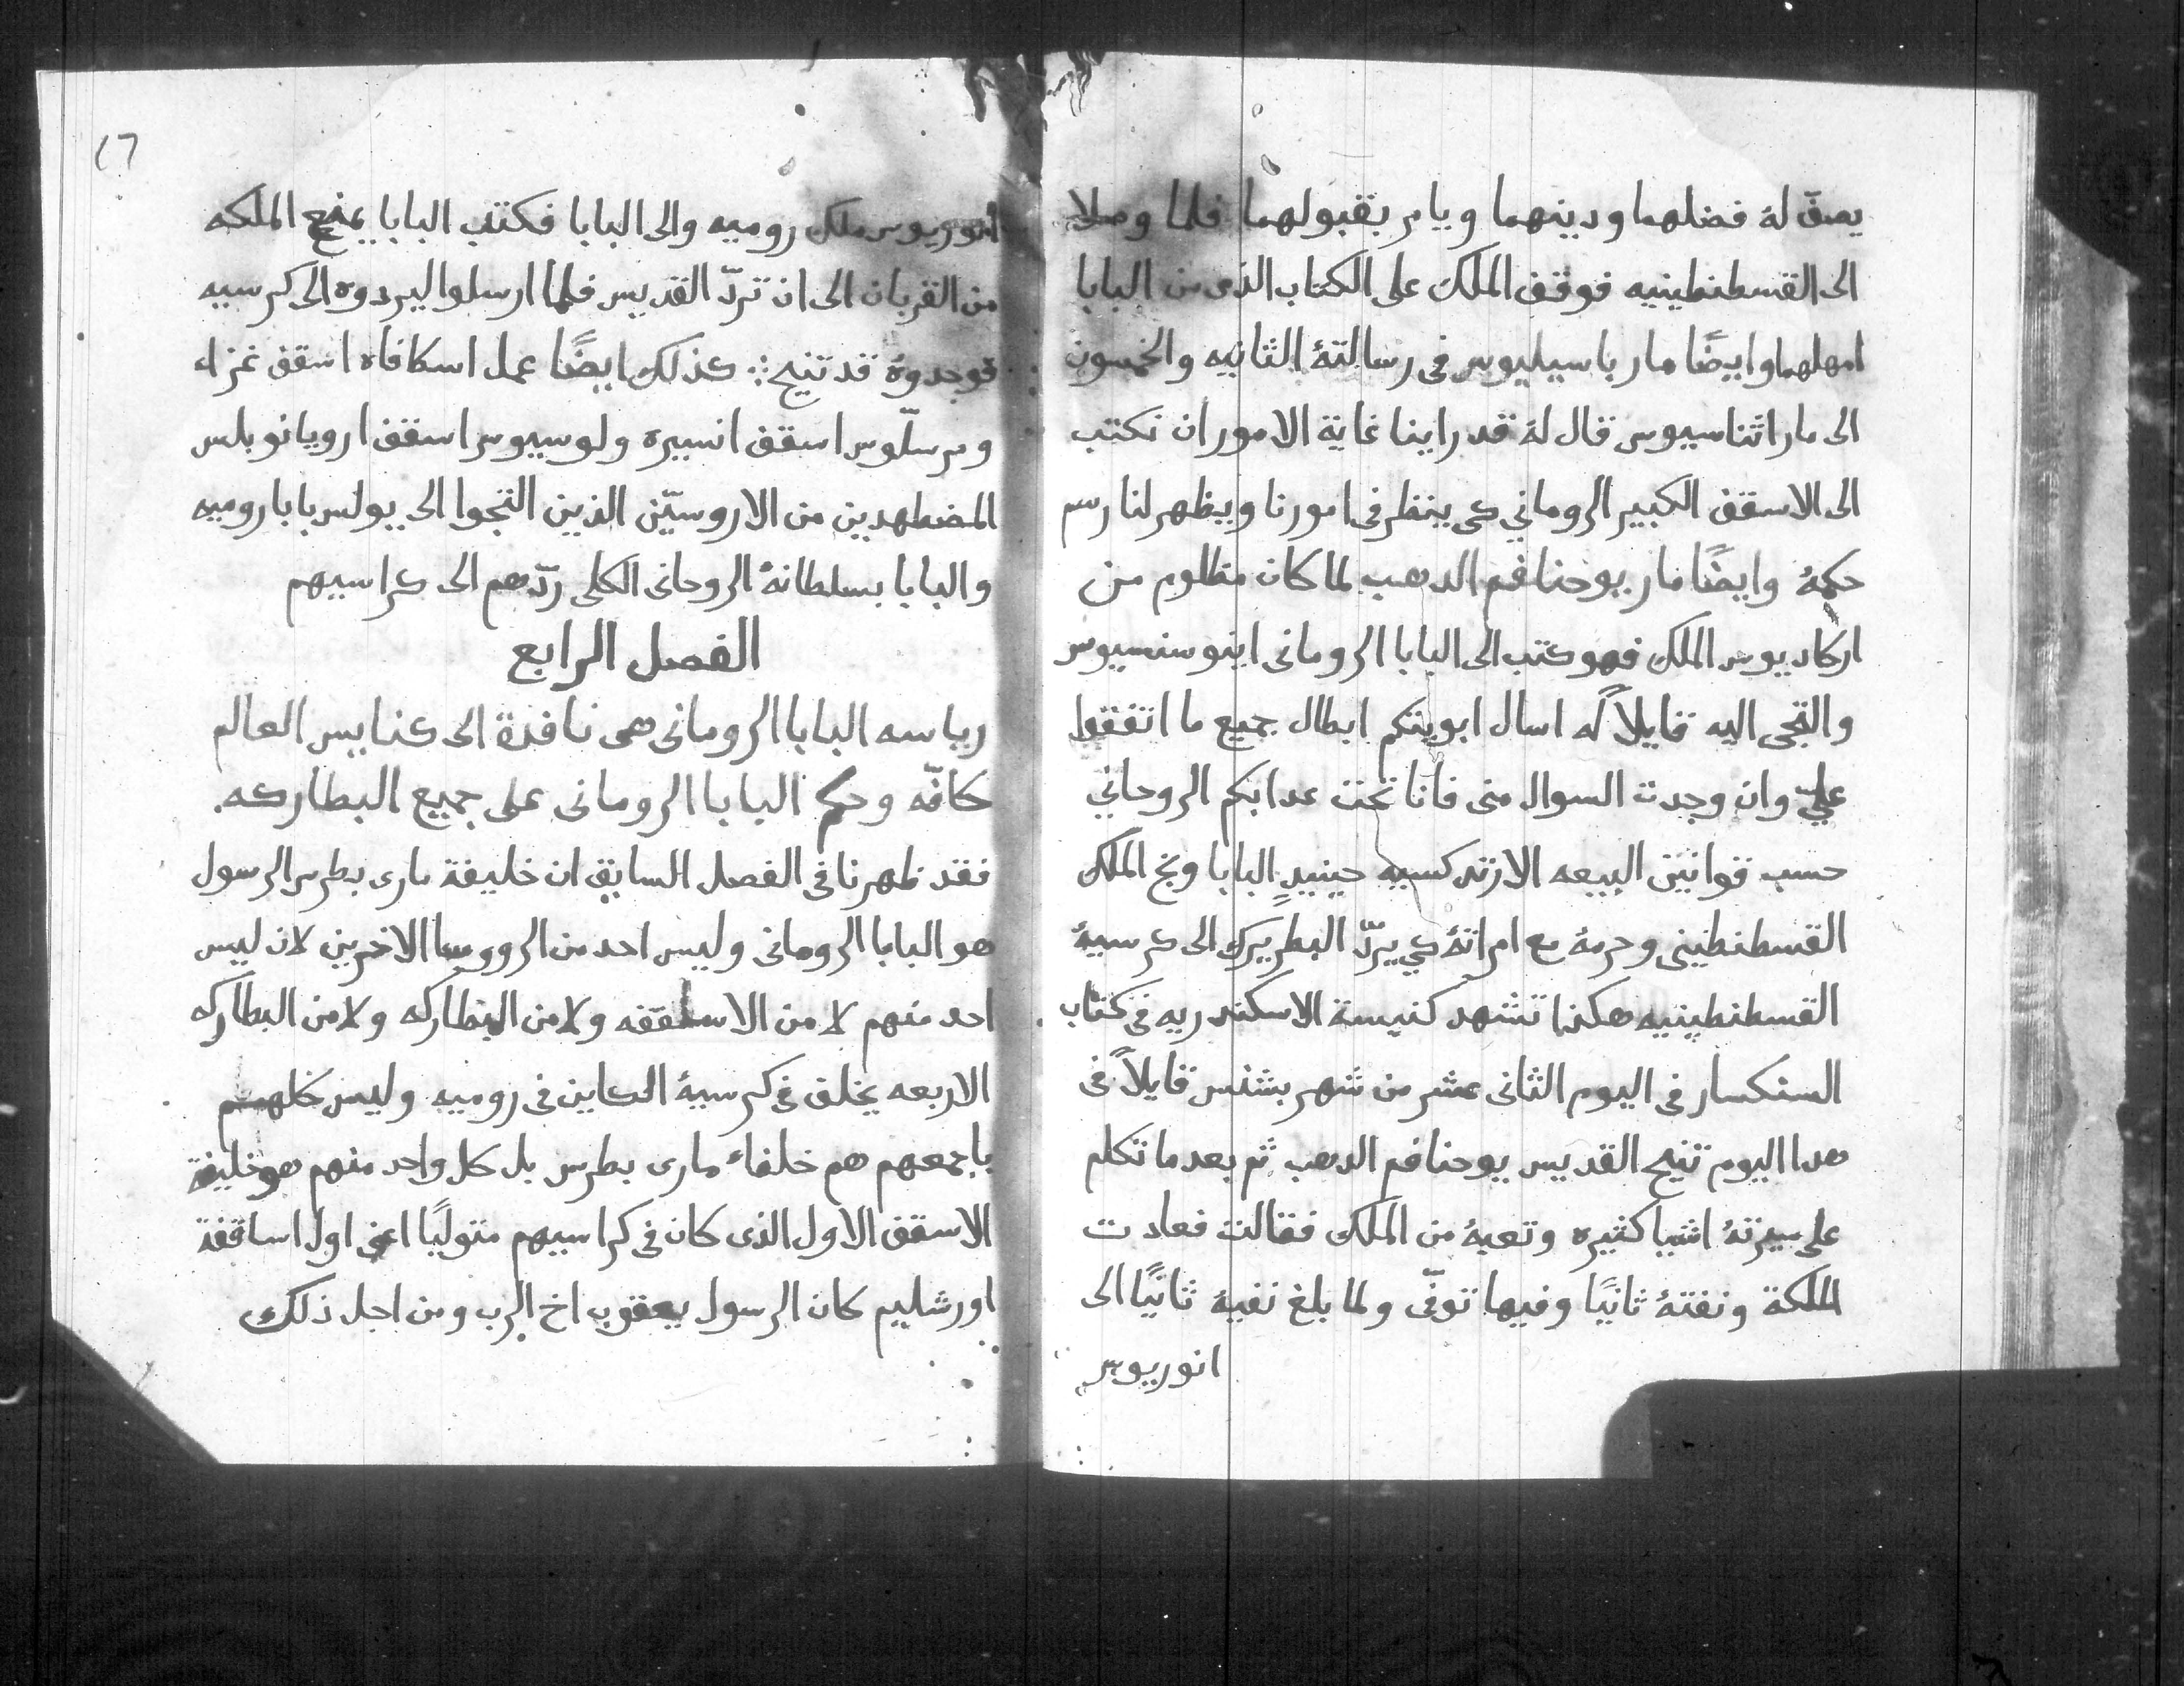 يصف له فضلهما ودينهما ويامر بقبولهما فلما وصلا
الى القسطنطينيه فوقف الملك على الكتاب الذى من البابا
امهلهما وايضًا مار باسيليوس فى رسالتهُ الثانيه والخمسون
الى مار اثناسيوس قال لهُ قد راينا غاية الامور ان نكتب
الى الاسقف الكبير الروماني كى ينظر فى امورنا ويظهر لنا رسم
حكمهُ وايضًا مار يوحنا فم الدهب لما كان مظلوم من
اركاديوس الملك فهو كتب الى البابا الرومانى اينوسنسيوس
والتجى اليه قايلاً له اسال ابويتكم ابطال جميع ما اتفقوا
عليّ وان وجدت السوال منى فانا تحت عدابكم الروحاني
حسب قوانين البيعه الارتدكسيه حينيدٍ البابا وبخ الملك
القسطنطينى وحرمهُ مع امراتهُ كي يردّ البطريرك الى كرسيهُ
القسطنطينيه هكذا تشهد كنيسة الاسكندريه فى كتاب
السنكسار فى اليوم الثانى عشر من شهر بشنس قايلاً فى
هدا اليوم تنيح القديس يوحنا فم الدهب ثم بعد ما تكلم
على سيرتهُ اشيا كثيره وتعبهُ من الملك فقالت فعادت
الملكة ونفتهُ ثانيًا وفيها توفّى ولما بلغ نفيهُ ثانيًا الى
انوريوس
١٦
انوريوس ملك روميه والى البابا فكتب البابا يمنع الملكه
من القربان الى ان تردّ القديس فلما ارسلوا ليردوه الى كرسيه
فوجدوهُ قد تنيح ⁘ كذلك ايضًا عمل اسكافاه اسقف غزاه
ومرسلّوس اسقف انسيره ولوسيوس اسقف ارويانوبلس
المضطهدين من الاروسيّن الذين التجوا الى بولس بابا روميه
والبابا بسلطانهُ الروحانى الكلى ردّهم الى كراسيهم
الفصل الرابع
رياسه البابا الرومانى هى نافدة الى كنايس العالم
كافّه وحكم البابا الرومانى على جميع البطاركه.
فقد ظهرنا فى الفصل السابق ان خليفة مارى بطرس الرسول
هو البابا الرومانى وليس احد من الرووسا الاخرين لان ليس
احد منهم لا من الاساقفه ولا من البطاركه ولا من البطاركه
الاربعه يخلف فى كرسيهُ الكاين فى روميه وليس كلهم
باجمعهم هم خلفاء مارى بطرس بل كل واحد منهم هو خليفة
الاسقف الاول الذى كان فى كراسيهم متوليًا اعنى اول اساقفة
اورشليم كان الرسول يعقوب اخ الرب ومن اجل ذلك